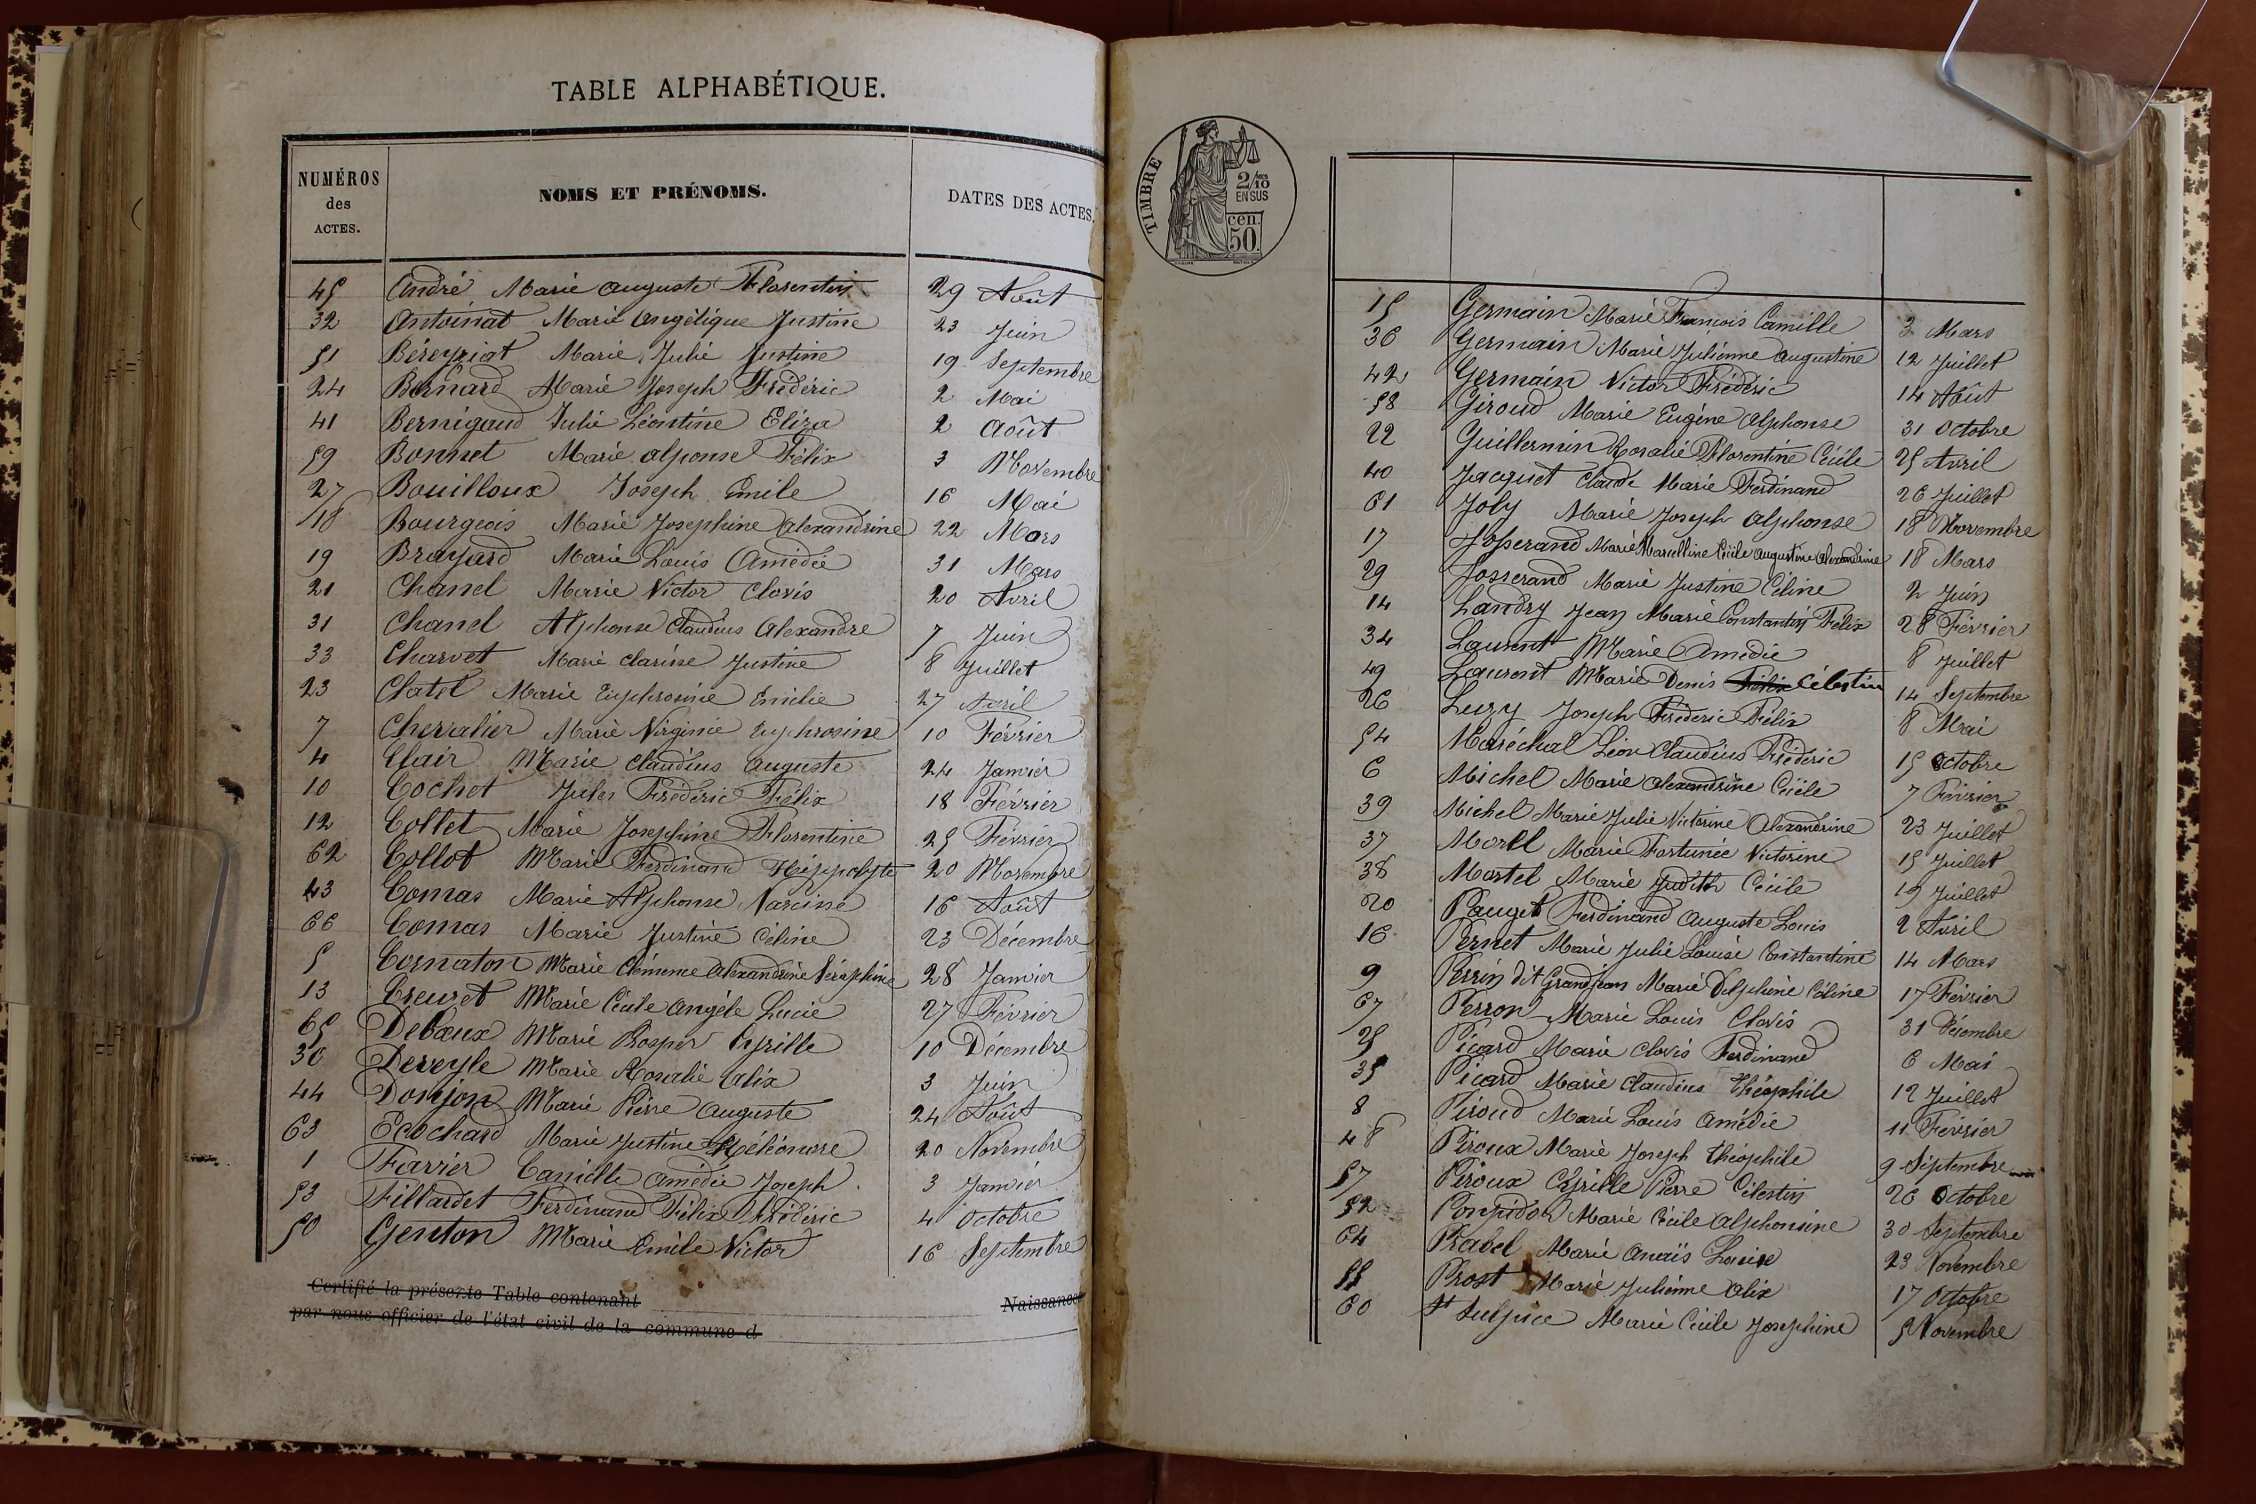 TABLE ALPHABÉTIQUE.
NUMÉROS des ACTES.
NOMS ET PRÉNOMS.
DATES DES ACTES.
45 André Marie Auguste Florentin 29 Août
32 Antoinat Marie Angélique Justine 23 Juin
51 Béreyziat Marie Julie Justine 19 Septembre
24 Bernard Marie Joseph Frédéric 2 Mai
41 Bernigaud Julie Léontine Eliza 2 Août
59 Bonnet Marie Alponse Félix 3 Novembre
27 Bouilloux Joseph Emile 16 Mai
18 Bourgeois Marie Josephine Alexandrine 22 Mars
19 Brayard Marie Louis Amédée 31 Mars
21 Chanel Marie Victor Clovis 20 Avril
31 Chanel Alphonse Claudius Alexandre 7 Juin
33 Charvet Marie Clarisse Justine 8 Juillet
23 Chatel Marie Euphrosine Emélie 27 Avril
7 Chevalier Marie Virginie Euphrosine 10 Février
4 Clair Marie Claudius Auguste 24 Janvier
10 Cochet Jules Frédéric Félix 18 Février
12 Collet Marie Josephine Florentine 25 Février
62 Collot Marie Ferdinand Héppolyte 20 Novembre
43 Comas Marie Alphonse Narcisse 16 Août
66 Comas Marie Justine Céline 23 Décembre
5 Cornaton Marie Clémence Alexandrine Séraphine 28 Janvier
13 Creuzet Marie Cécile Angèle Lucie 27 Février
65 Debœux Marie Prosper Cyrille 10 Décembre
30 Deveyle Marie Rosalie Alix 3 Juin
44 Donjon Marie Pierre Auguste 24 Août
63 Ecochard Marie Justine Héléonore 20 Novembre
1 Favier Camille Amédée Joseph 3 Janvier
53 Fillardet Ferdinand Félix Frédéric 4 Octobre
50 Genton Marie Emile Victor 16 Septembre
Certifié la présente Table contenant Naissances
par nous officier de l'état civil de la commune d
TIMBRE
2/10 EN SUS
cen. 50.
15 Germain Marie François Camille 3 Mars
36 Germain Marie Julienne Augustine 12 Juillet
42 Germain Victor Frédéric 14 Août
58 Giroud Marie Eugène Alphonse 31 Octobre
22 Guillermin Rosalie Florentine Cécile 25 Avril
40 Jacquet Claude Marie Ferdinand 26 Juillet
61 Joly Marie Joseph Alphonse 18 Novembre
17 Josserand Marie Marcelline Cécile Augustine Alexandrine 18 Mars
29 Josserand Marie Justine Céline 2 Juin
14 Landry Jean Marie Constantin Félix 28 Février
34 Laurent Marie Amédée 8 Juillet
49 Laurent Marie Denis Félix Célestin 14 Septembre
26 Luzy Joseph Fréderic Félix 8 Mai
54 Maréchal Léon Claudius Fréderic 15 Octobre
6 Michel Marie Alexandrine Cécile 7 Février
39 Michel Marie Julie Victorine Alexandrine 23 Juillet
37 Morel Marie Fortunée Victorine 15 Juillet
38 Mortel Marie Judith Cécile 19 Juillet
20 Pauget Ferdinand Auguste Louis 2 Avril
16 Pernet Marie Julie Louise Constantine 14 Mars
9 Perrin dit Grandjean Marie Delphine Céline 17 Février
67 Perron Marie Louis Clovis 31 Décembre
25 Picard Marie Clovis Ferdinand 6 Mai
35 Picard Marie Claudius Théophile 12 Juillet
8 Piroud Marie Louis Amédée 11 Février
48 Piroux Marie Joseph Théophile 9 Septembre
57 Piroux Cyrille Pierre Célestin 26 Octobre
52 Pompidor Marie Cécile Alphonsine 30 Septembre
64 Pravel Marie Anaïs Louise 23 Novembre
55 Prost Marie Julienne Alix 17 Octobre
60 St Sulpice Marie Cécile Josephine 5 Novembre